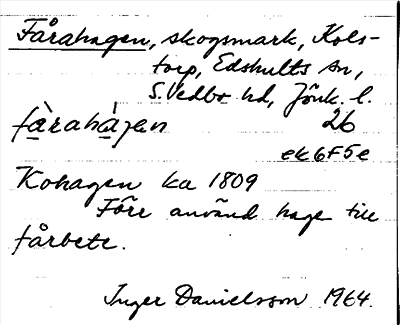 Fårahagen, skogsmark, Kols-
torp, Edshults sn,
S.Vedbo hd, Jönk. l.
fàrahàgen 26
ek 6F5e
Kohagen ka 1809
Förr använd hage till
fårbete.
Inger Danielsson 1964.